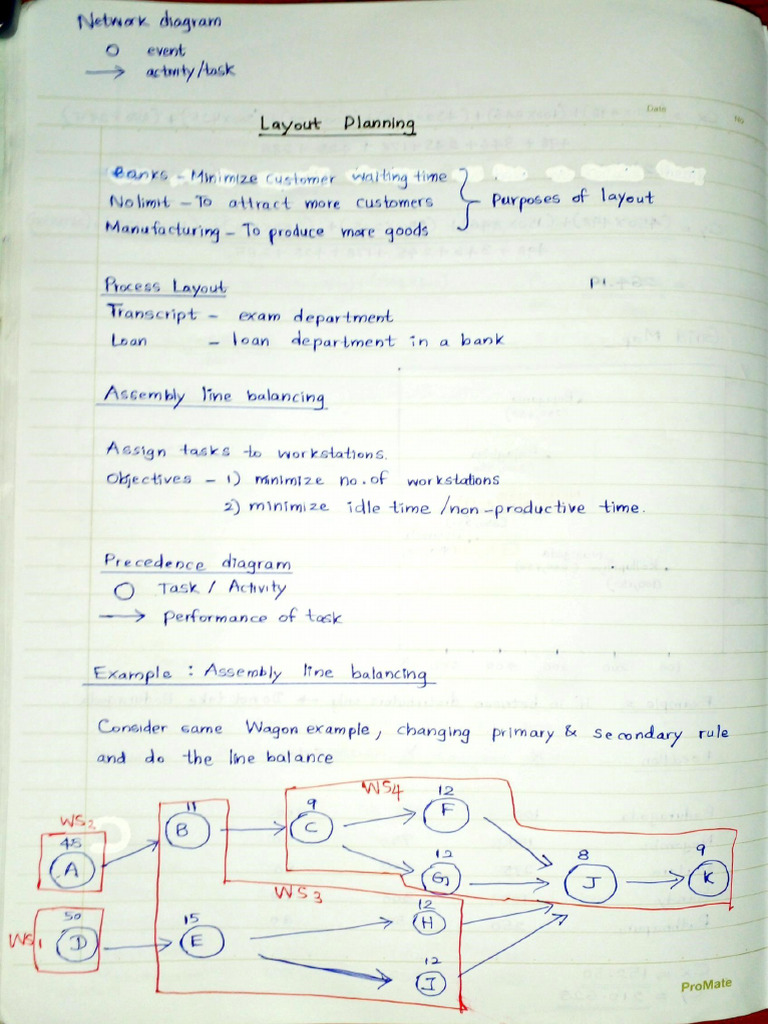 Network diagram
event
activity/task
Date
No
Layout Planning
Banks - Minimize customer waiting time
Nolimit - To attract more customers
Purposes of layout
Manufacturing - To produce more goods
Process Layout
P1.
Transcript - exam department
Loan - loan department in a bank
Assembly line balancing
Assign tasks to workstations.
Objectives - 1) minimize no. of workstations
2) minimize idle time /non-productive time.
Precedence diagram
Task / Activity
performance of task
Example : Assembly line balancing
Consider same Wagon example, changing primary & secondary rule
and do the line balance
WS4
12
F
11
B
9
C
WS2
45
A
12
G
8
J
9
K
WS3
WS1
50
D
15
E
12
H
12
I
ProMate